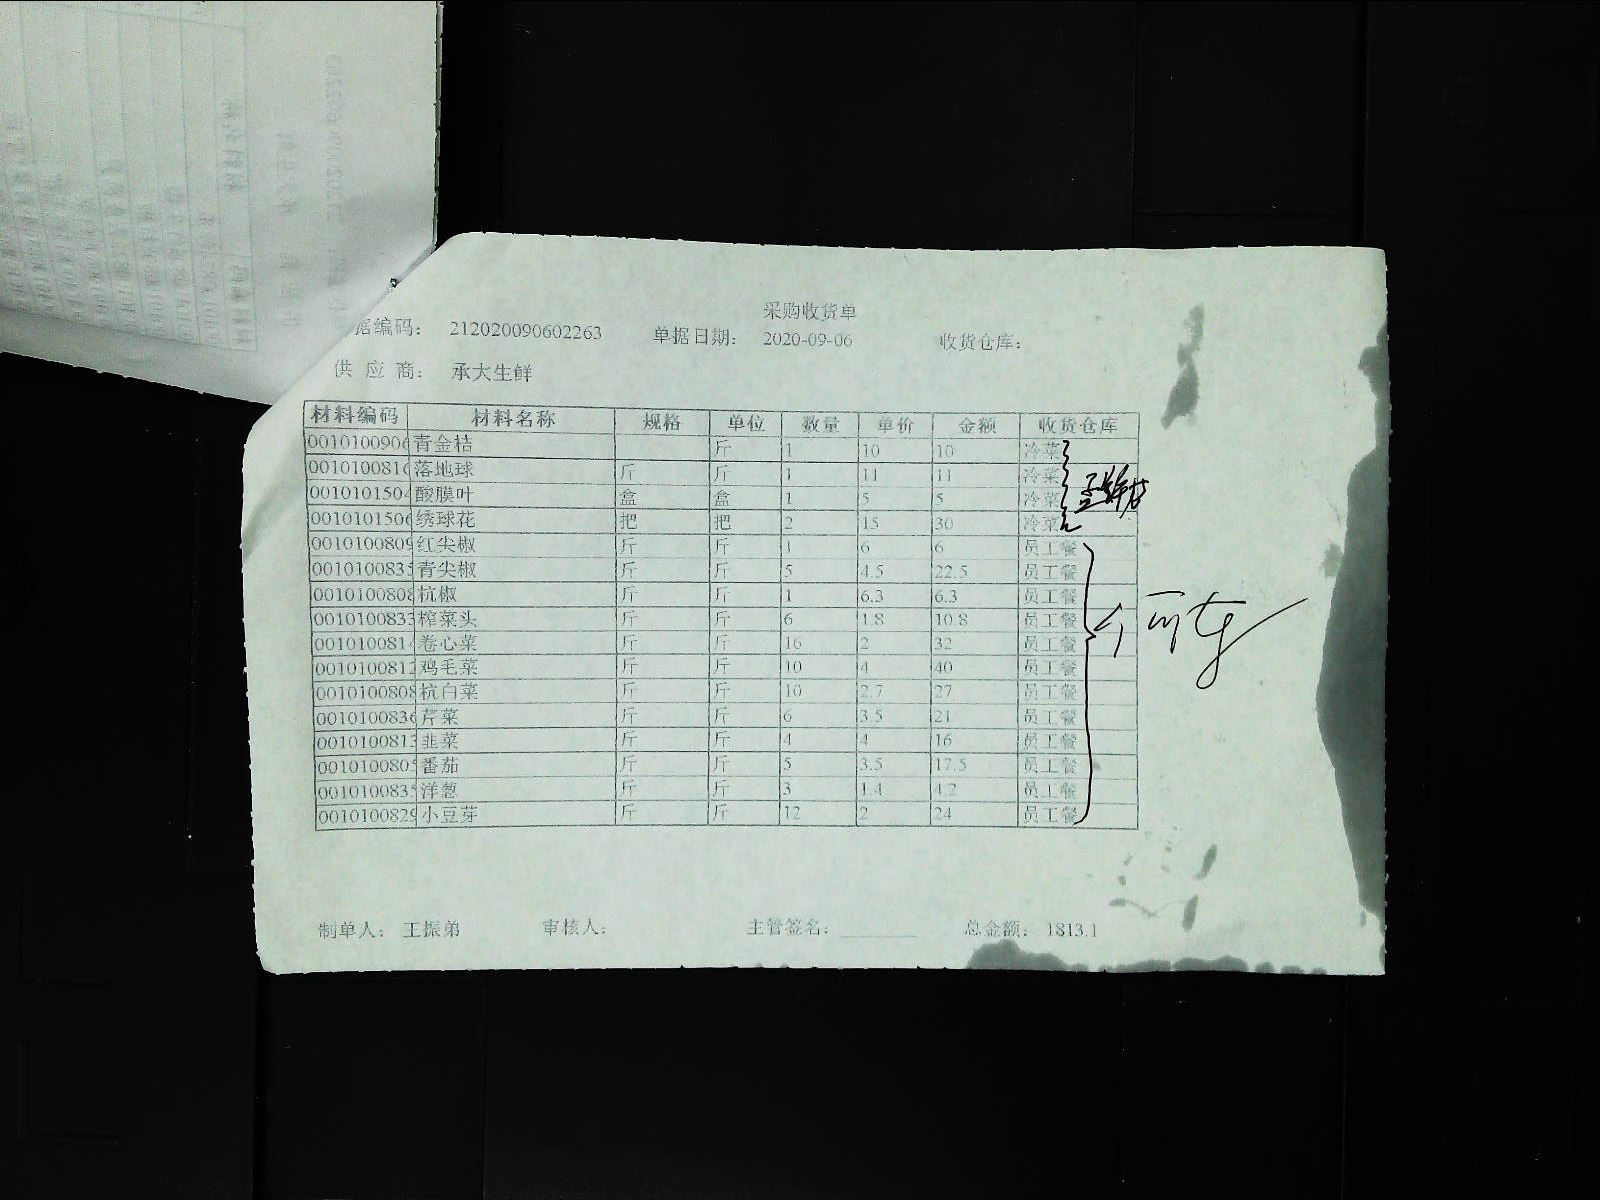 采购收货单
据编码： 212020090602263 单据日期： 2020-09-06 收货仓库：
供 应 商： 承大生鲜
材料编码 材料名称 规格 单位 数量 单价 金额 收货仓库
001010090 青金桔 斤 1 10 10 冷菜
001010081 落地球 斤 斤 1 11 11 冷菜
001010150 酸膜叶 盒 盒 1 5 5 冷菜
0010101506 绣球花 把 把 2 15 30 冷菜
0010100809 红尖椒 斤 斤 1 6 6 员工餐
001010083 青尖椒 斤 斤 5 4.5 22.5 员工餐
0010100808 杭椒 斤 斤 1 6.3 6.3 员工餐
001010083 榨菜头 斤 斤 6 1.8 10.8 员工餐
001010081 卷心菜 斤 斤 16 2 32 员工餐
001010081 鸡毛菜 斤 斤 10 4 40 员工餐
0010100808 杭白菜 斤 斤 10 2.7 27 员工餐
001010083 芹菜 斤 斤 6 3.5 21 员工餐
001010081 韭菜 斤 斤 4 4 16 员工餐
001010080 番茄 斤 斤 5 3.5 17.5 员工餐
001010083 洋葱 斤 斤 3 1.4 4.2 员工餐
001010082 小豆芽 斤 斤 12 2 24 员工餐
制单人： 王振弟 审核人： 主管签名： 总金额： 1813.1